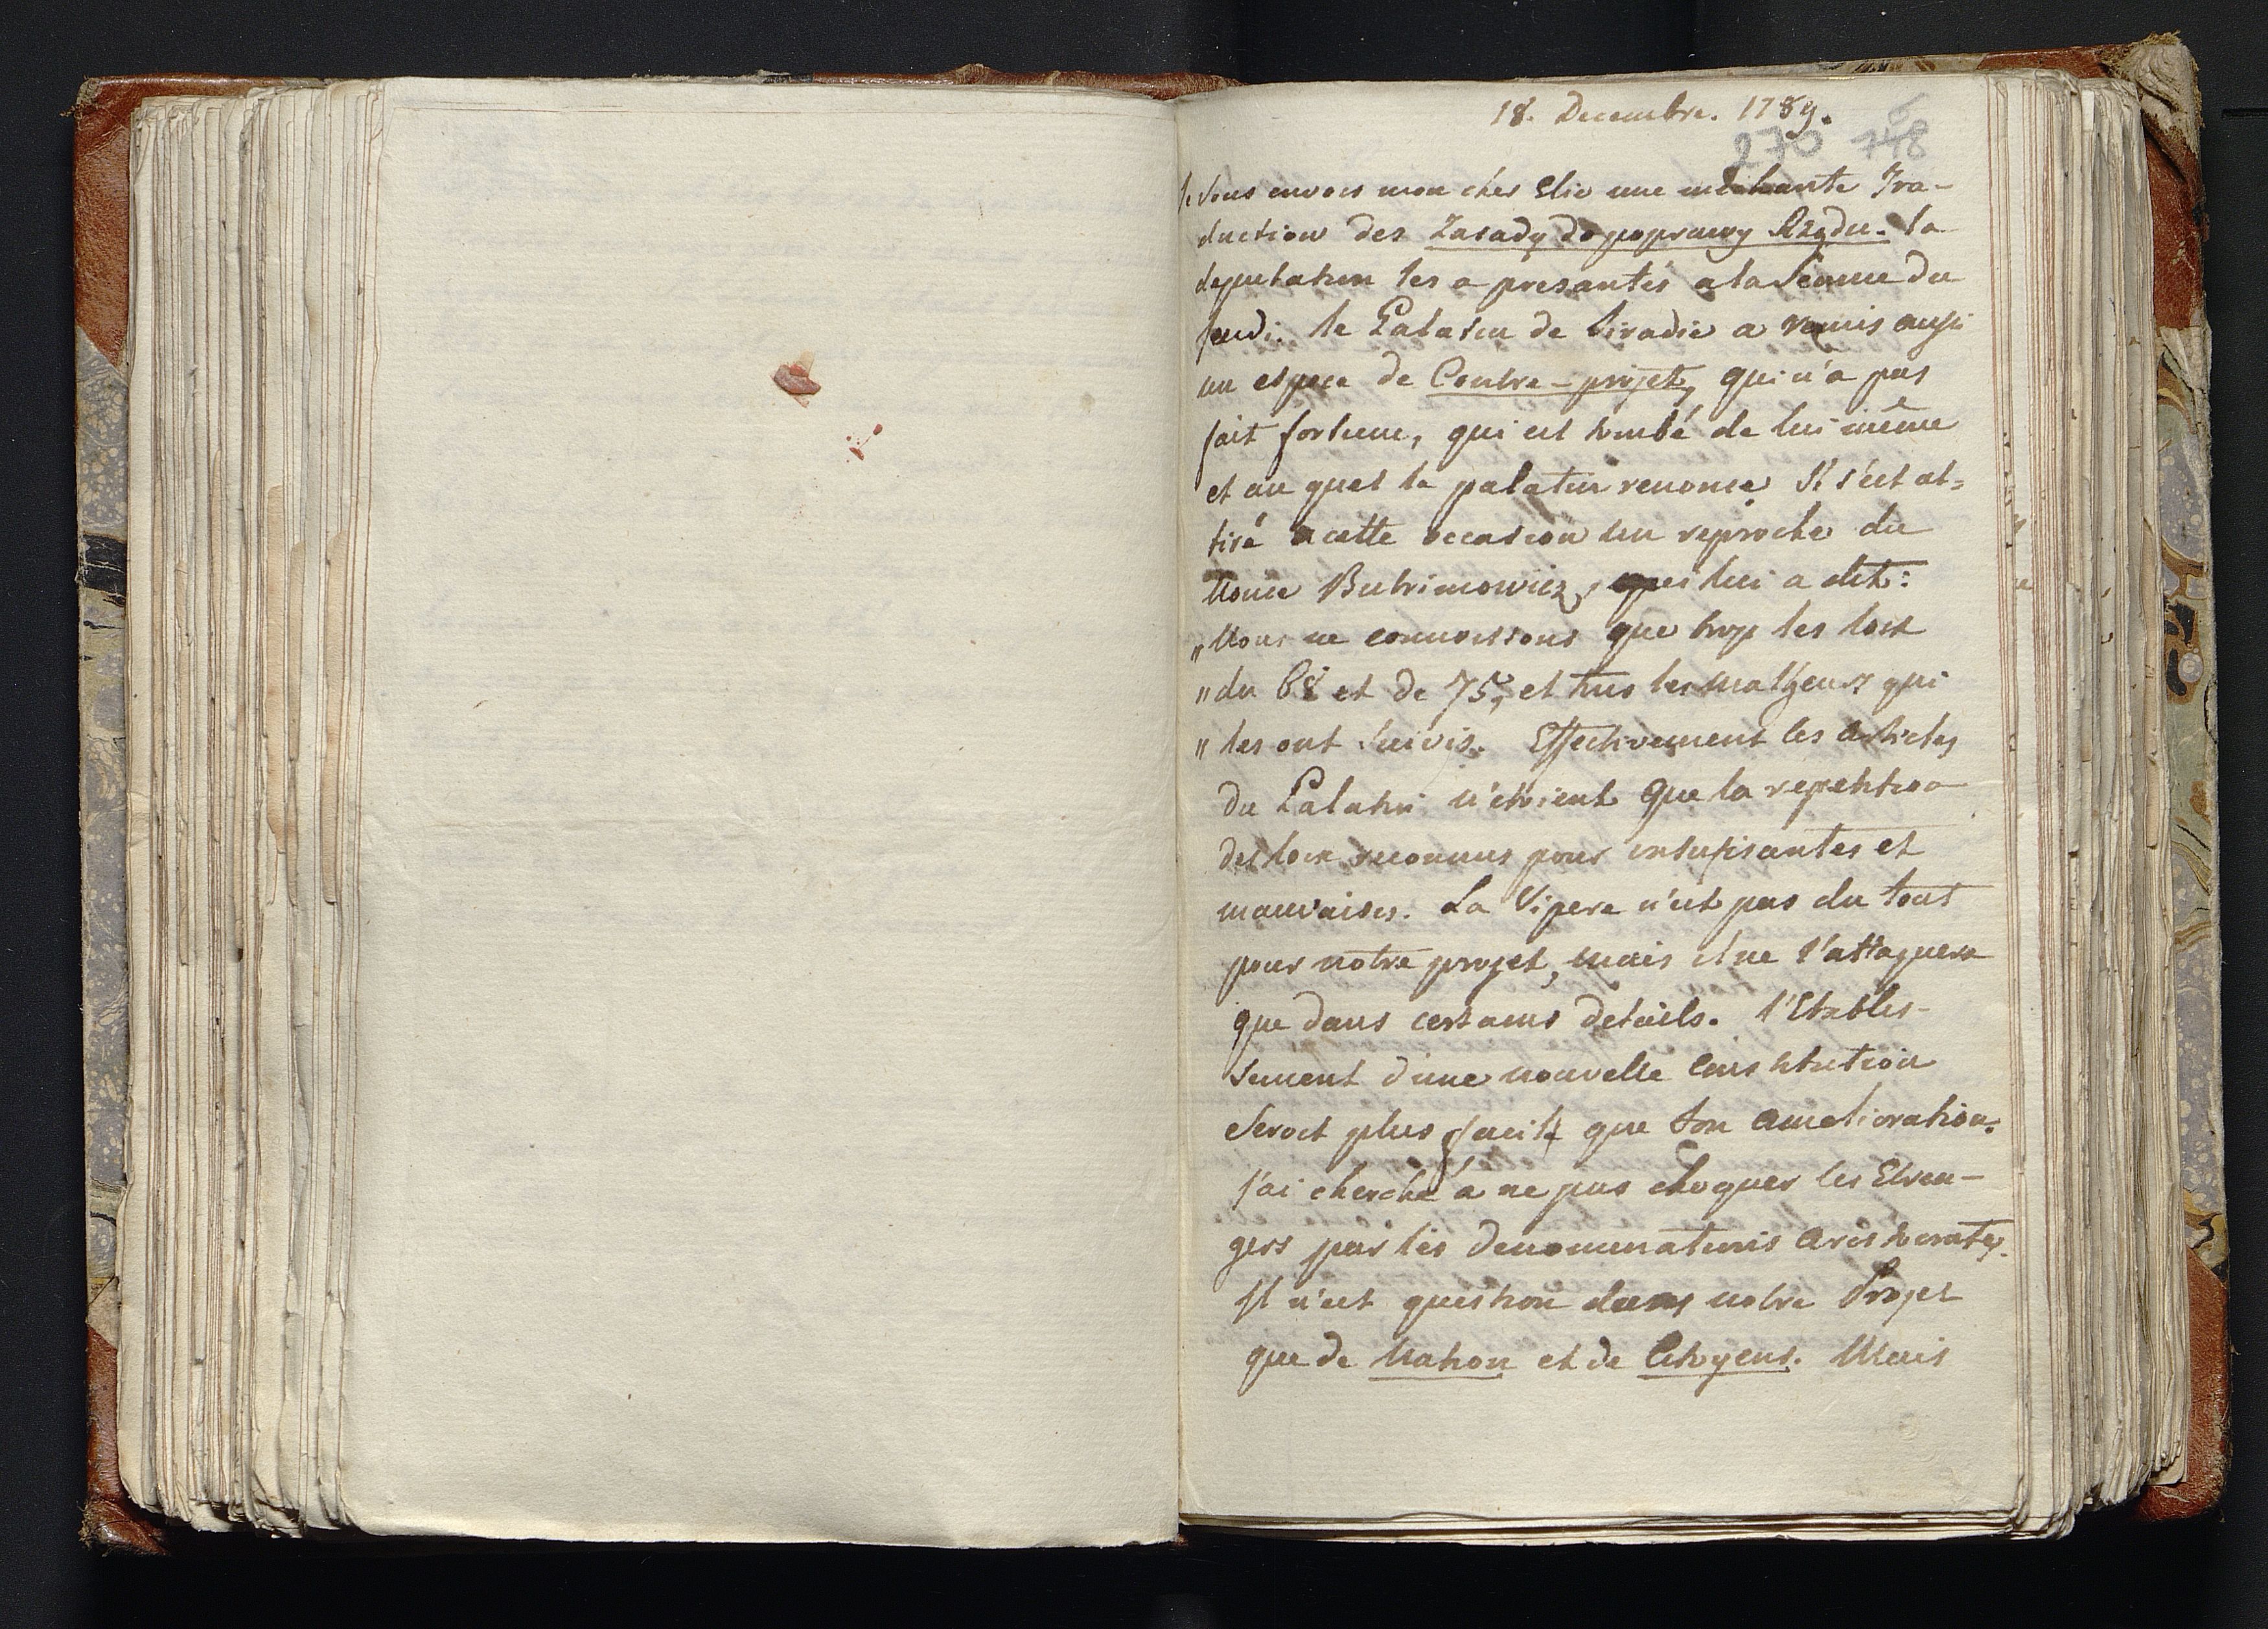 18. Decembre. 1789.
270 748
6
Je vous envois mon cher Elie une mechante Tra-
duction des Zasady do poprawy Rządu. la
deputation les a presantés a la Séance du
Jeudi. le Palatin de Siradie a remis aussi
un espece de Contre-projet, qui n'a pas
fait fortune, qui est tombé de lui même
et au quel le palatin renonce Il s'est at=
tiré a cette occasion un reproche du
Nonce Butrimowicz, qui lui a dit:
„Nous ne connoissons que trop les loix
„du 68 et de 75, et tous les malheurs qui
„les ont suivis. Effectivement les articles
du Palatin n'étoient que la repetition
des loix reconnus pour insufisantes et
mauvaises. La Vipere n'est pas du tout
pour notre projet, mais il ne l'attaquera
que dans certains details. l'Etablis-
sement d'une nouvelle Constitution
Seroit plus facile que son amelioration.
J'ai cherché à ne pas choquer les Etran-
gers par les denominations aristocrates.
Il n'est question dans notre Projet
que de Nation et de Citoyens. Mais